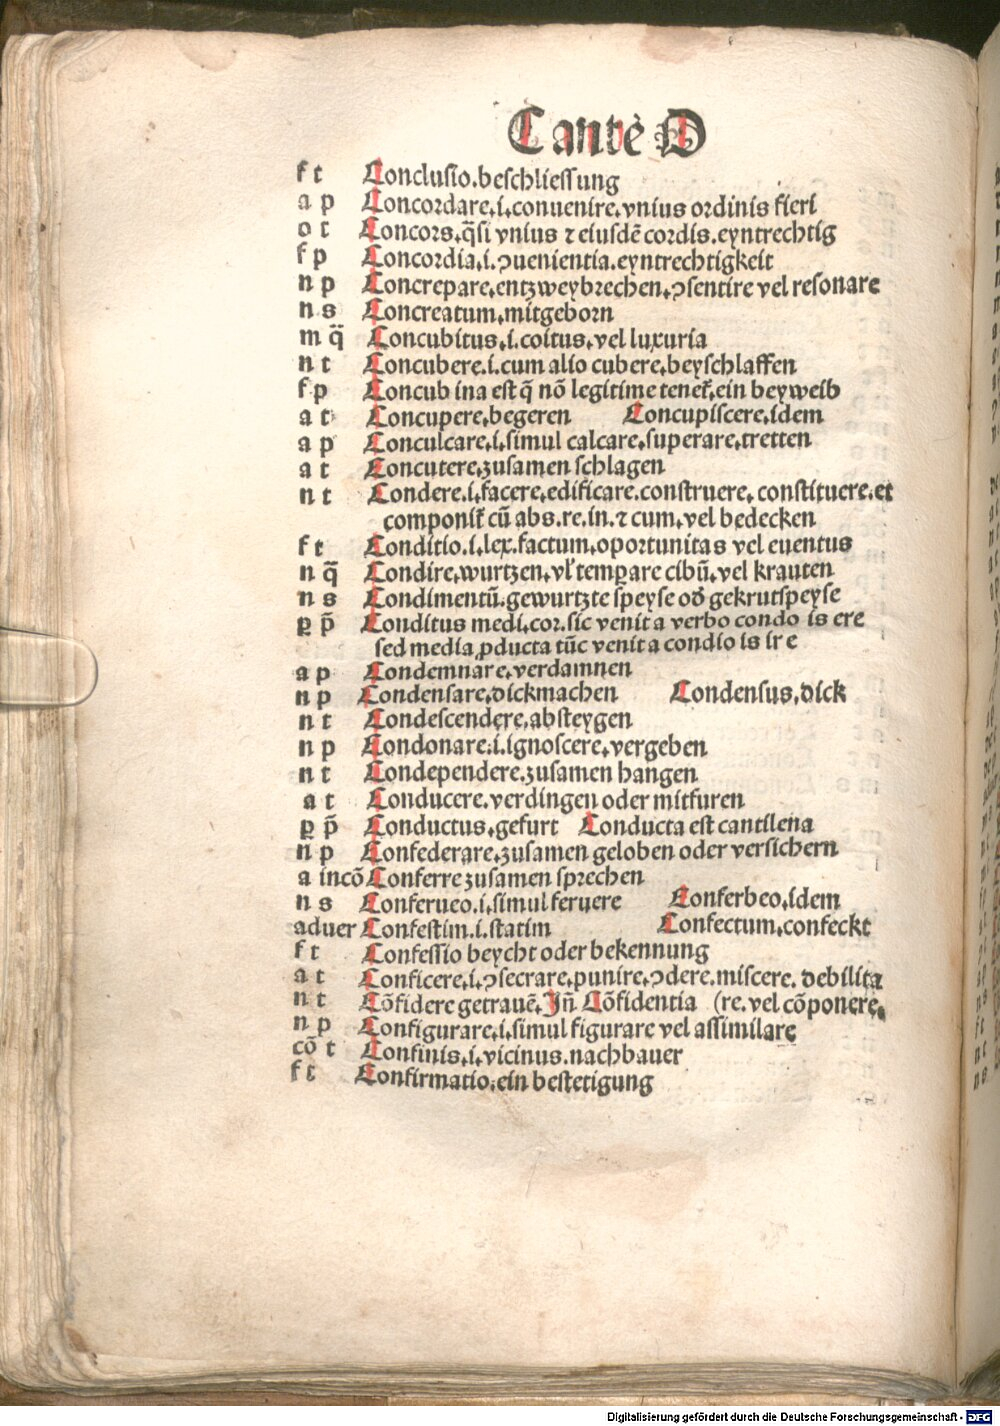 C antē D
f t Conclusio.beschliessung
a p Concordare.i.conuenire.vnius ordinis fieri
o t Concors.q̄si vnius ⁊ eiusdē cordis.eyntrechtig
f p Concordia.i.ↄuenientia.eyntrechtigkeit
n p Concrepare.entzweybrechen.ↄsentire vel resonare
n s Concreatum.mitgeborn
m q̄ Concubitus.i.coitus.vel luxuria
n t Concubere.i.cum alio cubere.beyschlaffen
f p Concub ina est q̄ nō legitime tenet᷑.ein beyweib
a t Concupere.begeren Concupiscere.idem
a p Conculcare.i.simul calcare.superare.tretten
a t Concutere.zusamen schlagen
n t Condere.i.facere.edificare.construere.constituere.et
componit᷑ cū abs.re.in.⁊ cum.vel bedecken
f t Conditio.i.lex.factum.oportunitas vel euentus
n q̄ Condire.wurtzen.vl᷑ temꝑare cibū.vel krauten
n s Condimentū.gewurtzte speyse od᷑ gekrutspeyse
ꝑ p̄ Conditus medi.cor.sic venit a verbo condo is ere
sed media ꝓducta tūc venit a condio is ir e
a p Condemnare.verdamnen
n p Condensare.dickmachen Condensus.dick
n t Condescendere.absteygen
n p Condonare.i.ignoscere.vergeben
n t Condependere.zusamen hangen
a t Conducere.verdingen oder mitfuren
ꝑ p̄ Conductus.gefurt Conducta est cantilena
n p Confederare.zusamen geloben oder versichern
a incō Conferre zusamen sprechen
n s Conferueo.i.simul feruere Conferbeo.idem
aduer Confestim.i.statim Confectum.confeckt
f t Confessio beycht oder bekennung
a t Conficere.i.ↄsecrare.punire.ↄdere.miscere.debilita
n t Cōfidere getrauē.Jn̄ Cōfidentia (re.vel cōponere.
n p Configurare.i.simul figurare vel assimilare
cō t Confinis.i.vicinus.nachbauer
f t Confirmatio.ein bestetigung
Digitalisierung gefördert durch die Deutsche Forschungsgemeinschaft - DFG